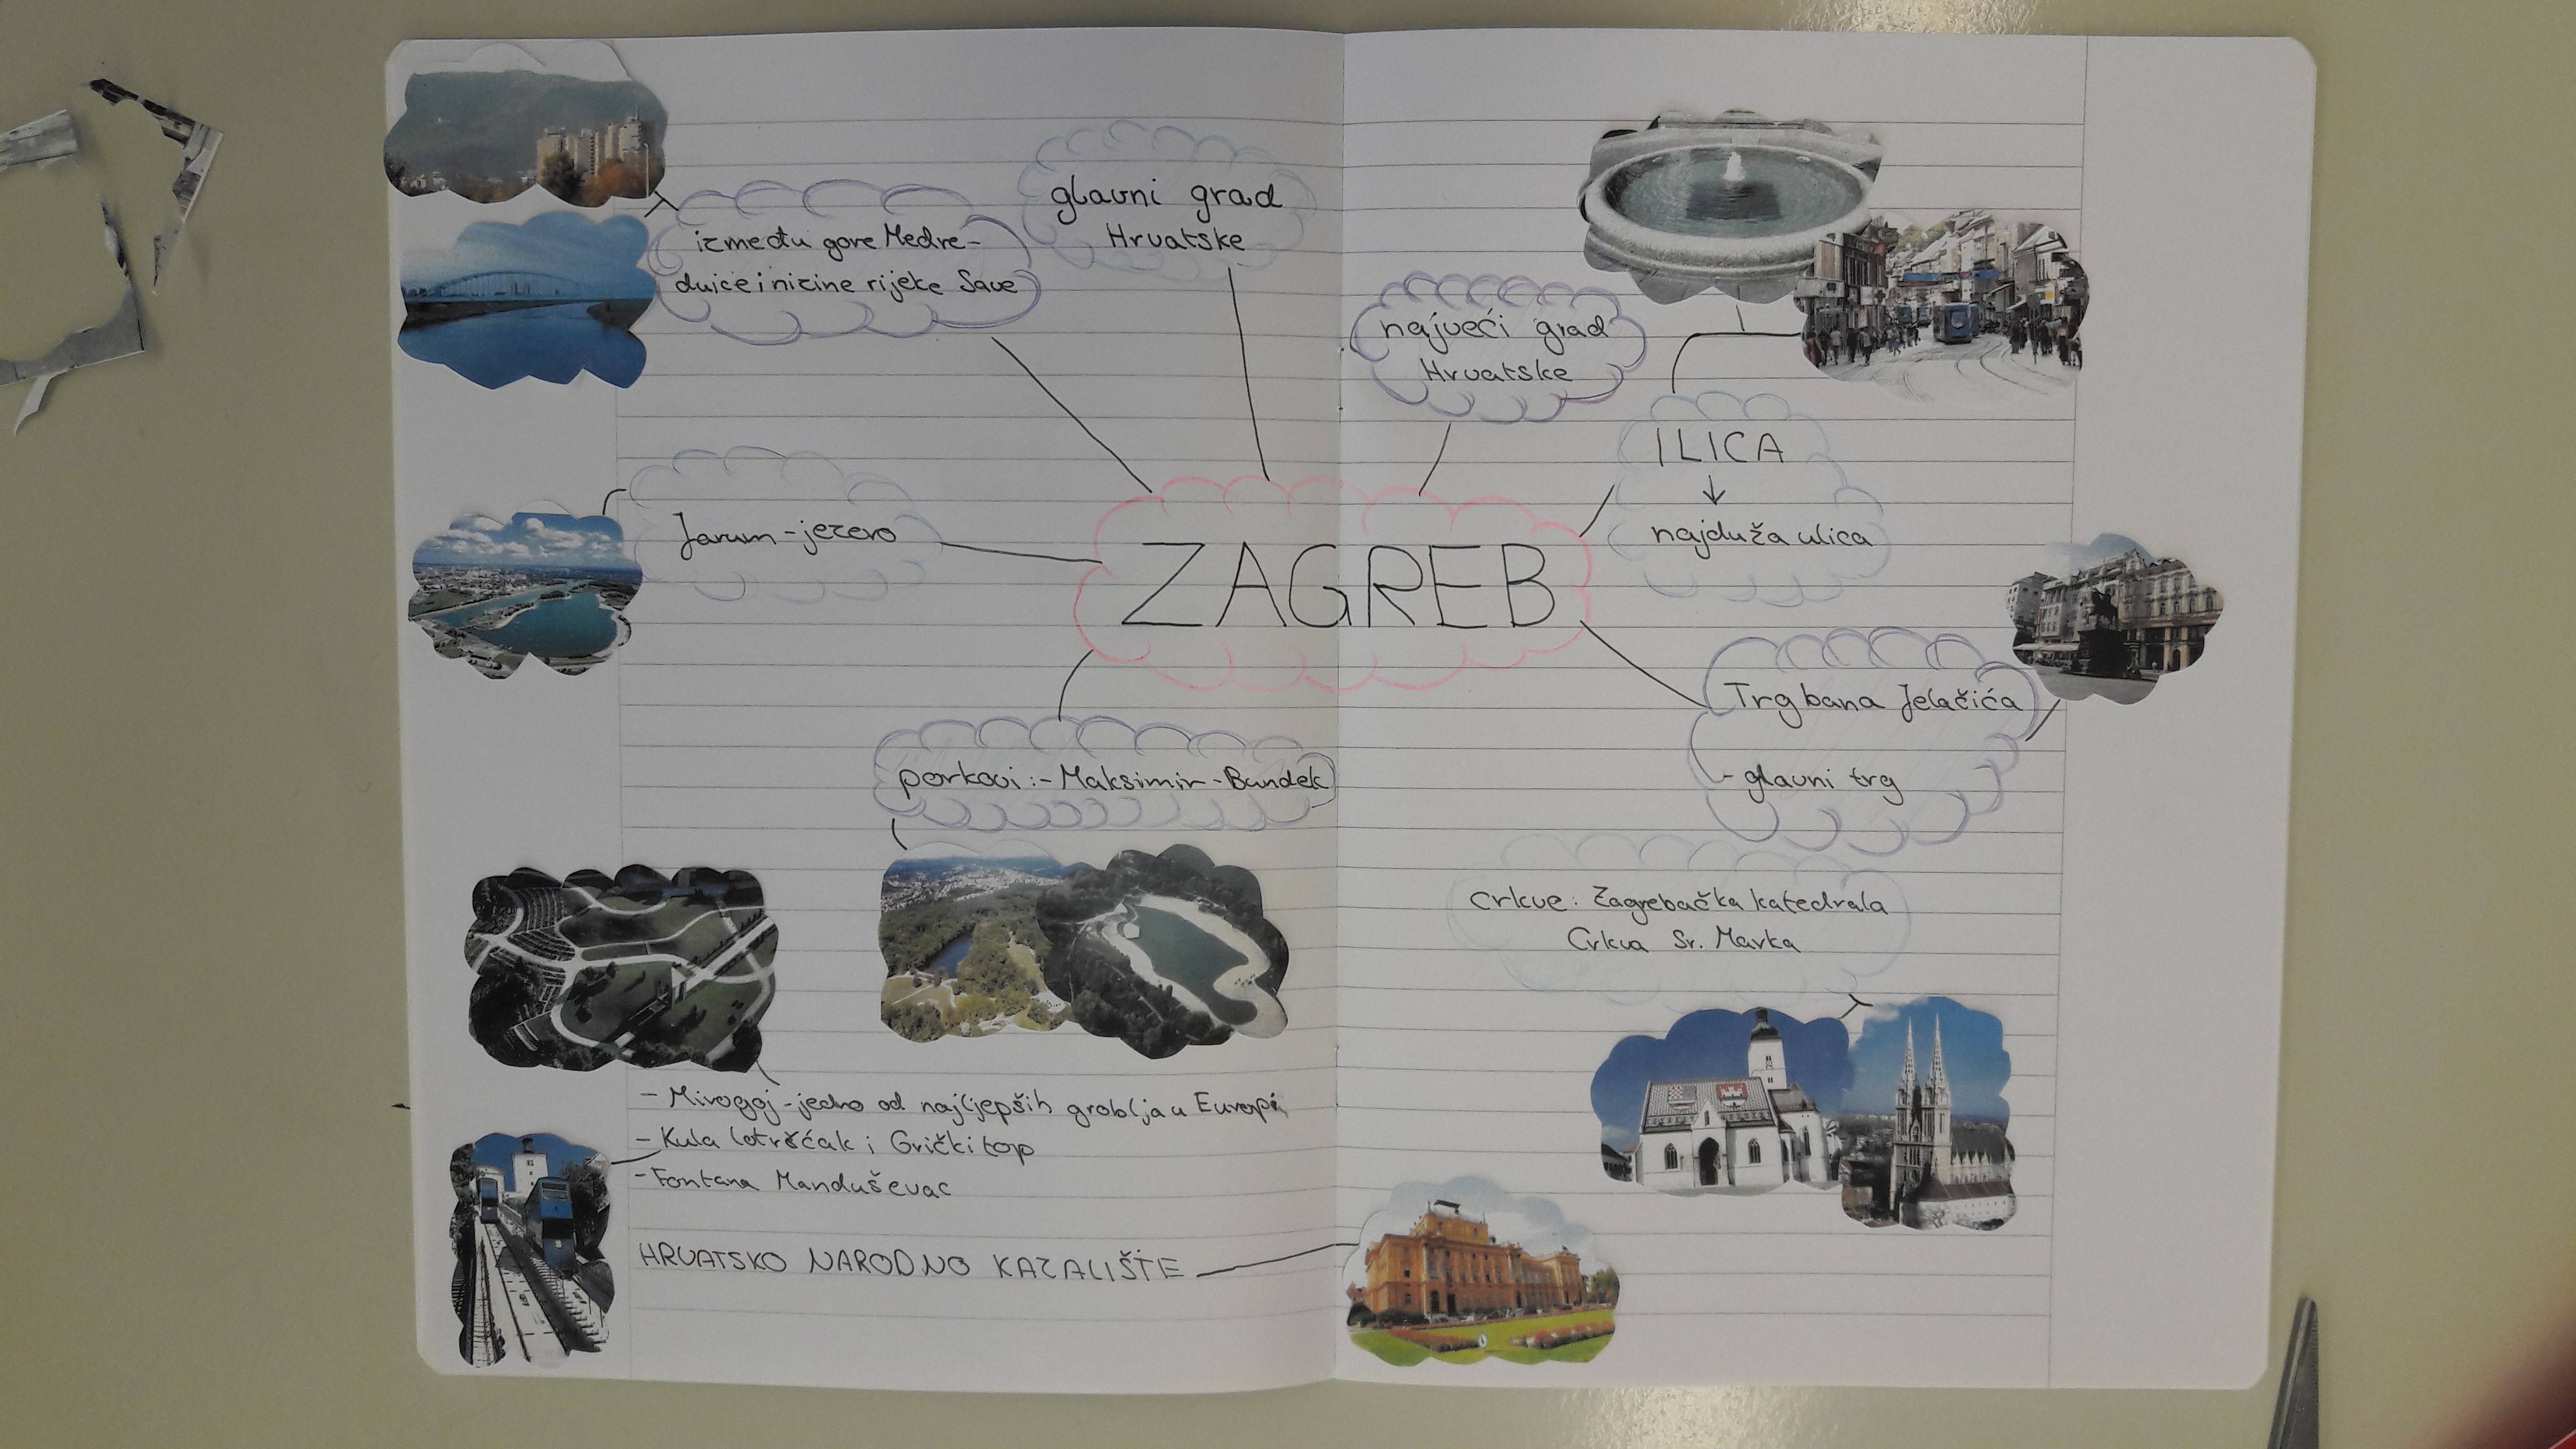 glavni grad
Hrvatske
između gore Medve-
dnice i nizine rijeke Save
najveći grad
Hrvatske
ILICA
↓
najduža ulica
Jarun - jezero
ZAGREB
Trg bana Jelačića
- glavni trg
parkovi: - Maksimir - Bundek
Crkve: Zagrebačka katedrala
Crkva Sv. Marka
- Mirogoj - jedno od najljepših groblja u Europi
- Kula lotrščak i Grički top
- Fontana Manduševac
HRVATSKO NARODNO KAZALIŠTE